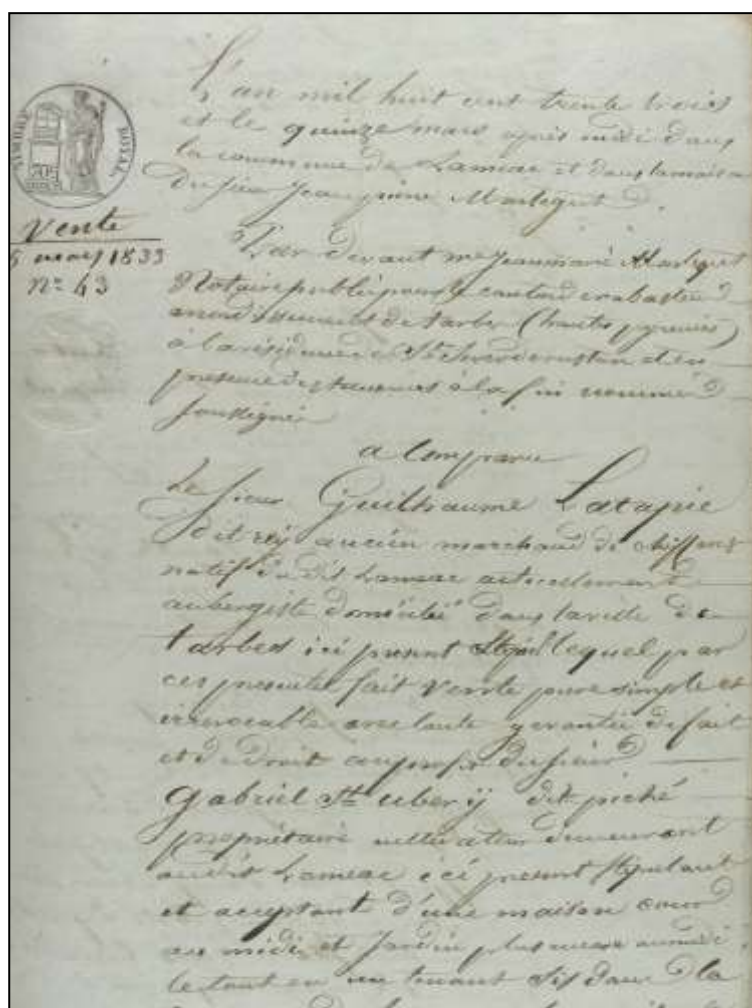 TIMBRE ROYAL
Vente
mars 1833
N° 43
L'an mil huit cent trente trois
et le quinze mars après midi dans
la commune de Lameac et dans la maison
du sieur Jean pierre Marlegut
Par devant me Jeanmarie Marlegut
Notaire public pour le canton de rabastens
arrondissement de tarbes (hautes pyrenées)
à la résidence de St Sever de rustan et en
presence des temoins à la fin nommés
soussignés
a Comparu
Le sieur Guilhaume Latapie
dit rey ancien marchand de chiffons
natif du dit Lameac actuellement
aubergiste domicilié dans la ville de
tarbes ici present lequel par
ces presentes fait vente pure simple et
irrevocable avec toute garantie de fait
et de droit au profit du sieur
Gabriel St ubery dit piché
propriétaire cultivateur demeurant
audit Lameac ici present stipulant
et acceptant d'une maison cour
au midi et Jardin plus au midi
le tout en un tenant sis dans la